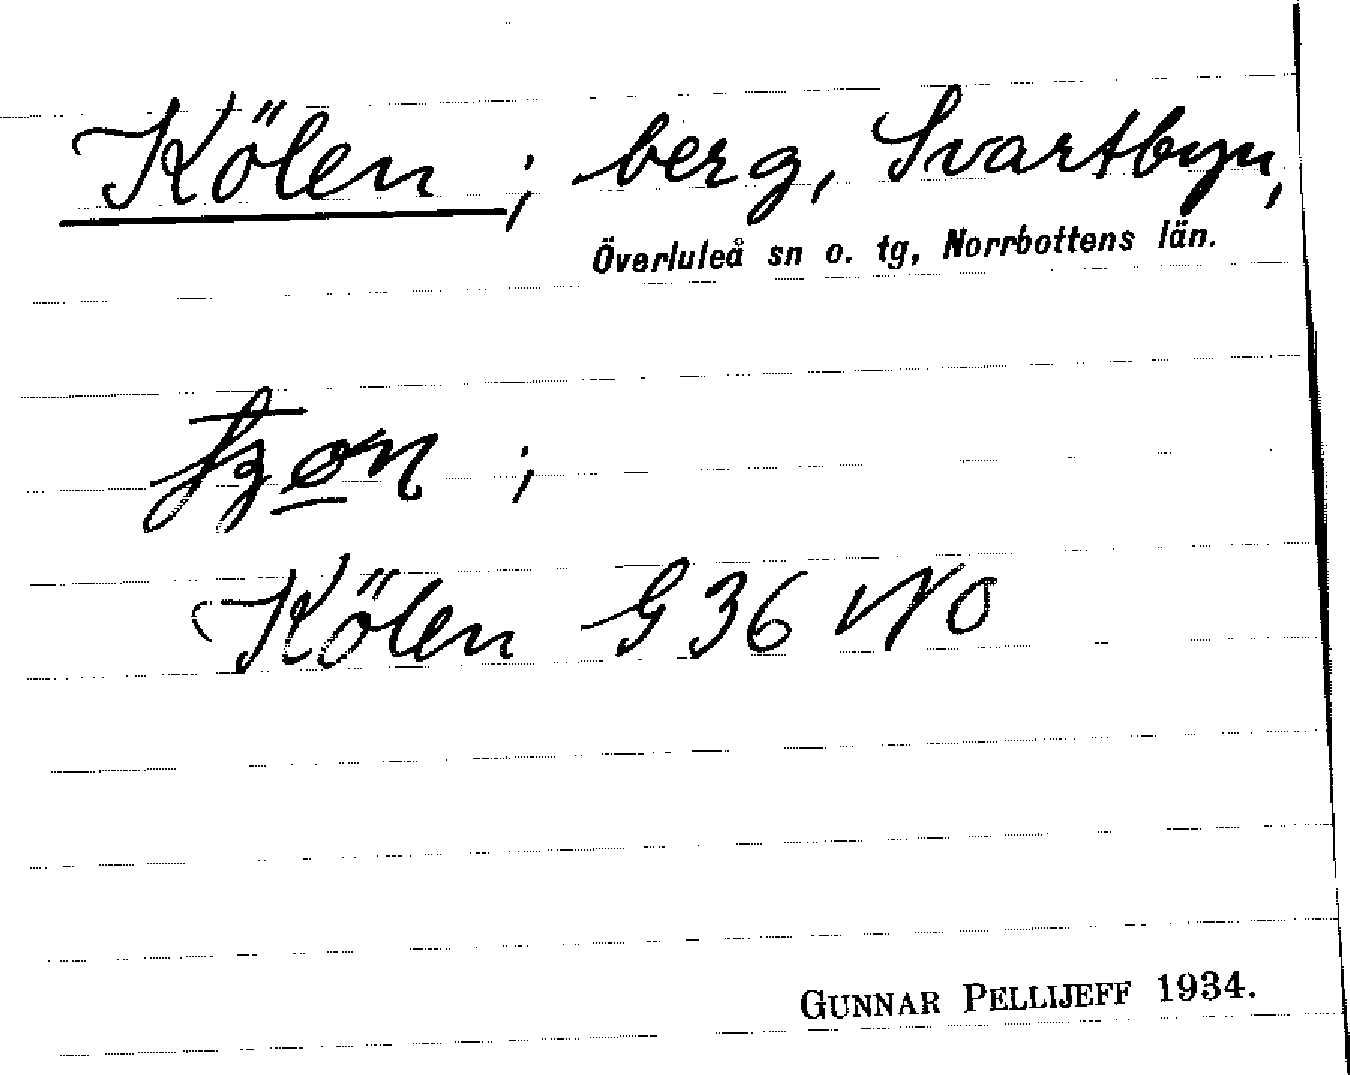 Kölen; berg, Svartbyn,
Överluleå sn o. tg, Norrbottens län.
Kölen G 36 NO
GUNNAR PELLIJEFF 1934.